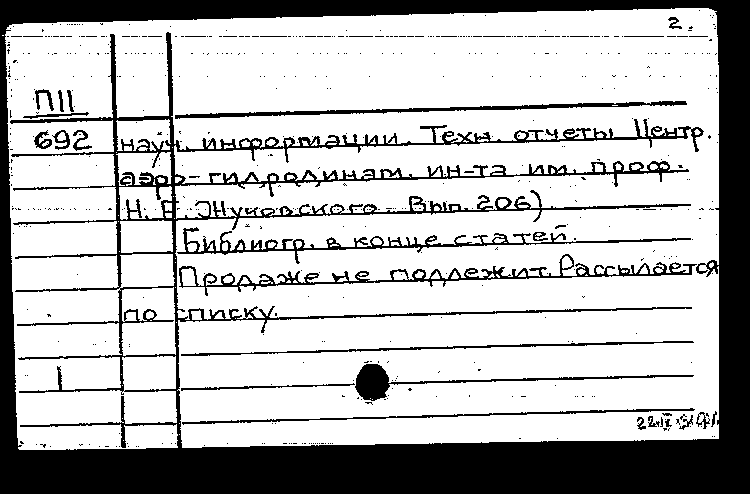 2.
П11
692
науч. информации. Техн. отчеты Центр.
аэро-гидродинам. ин-та им. проф.
Н. Е. Жуковского. Вып. 206).
Библиогр. в конце статей.
Продаже не подлежит. Рассылается
по списку.
1